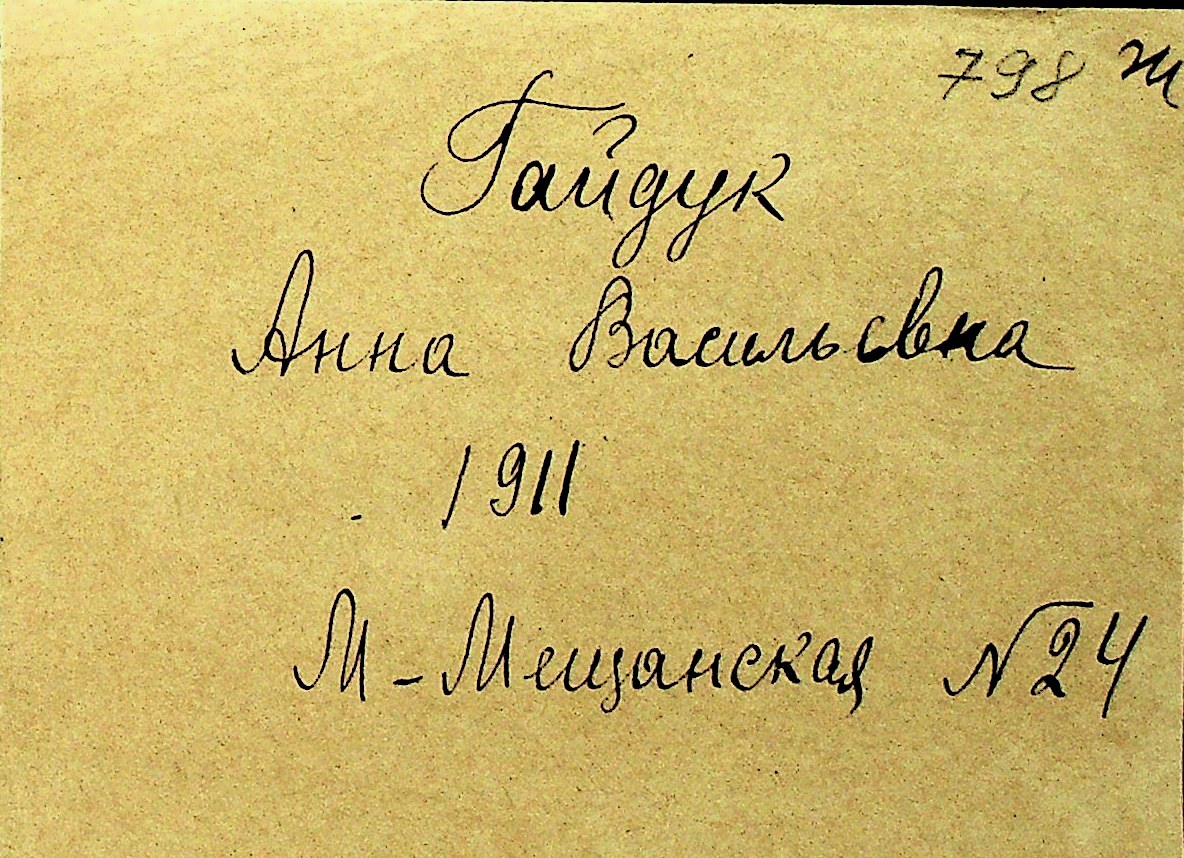 798 ж
Гайдук
Анна Васильевна
1911
М-Мещанская №24